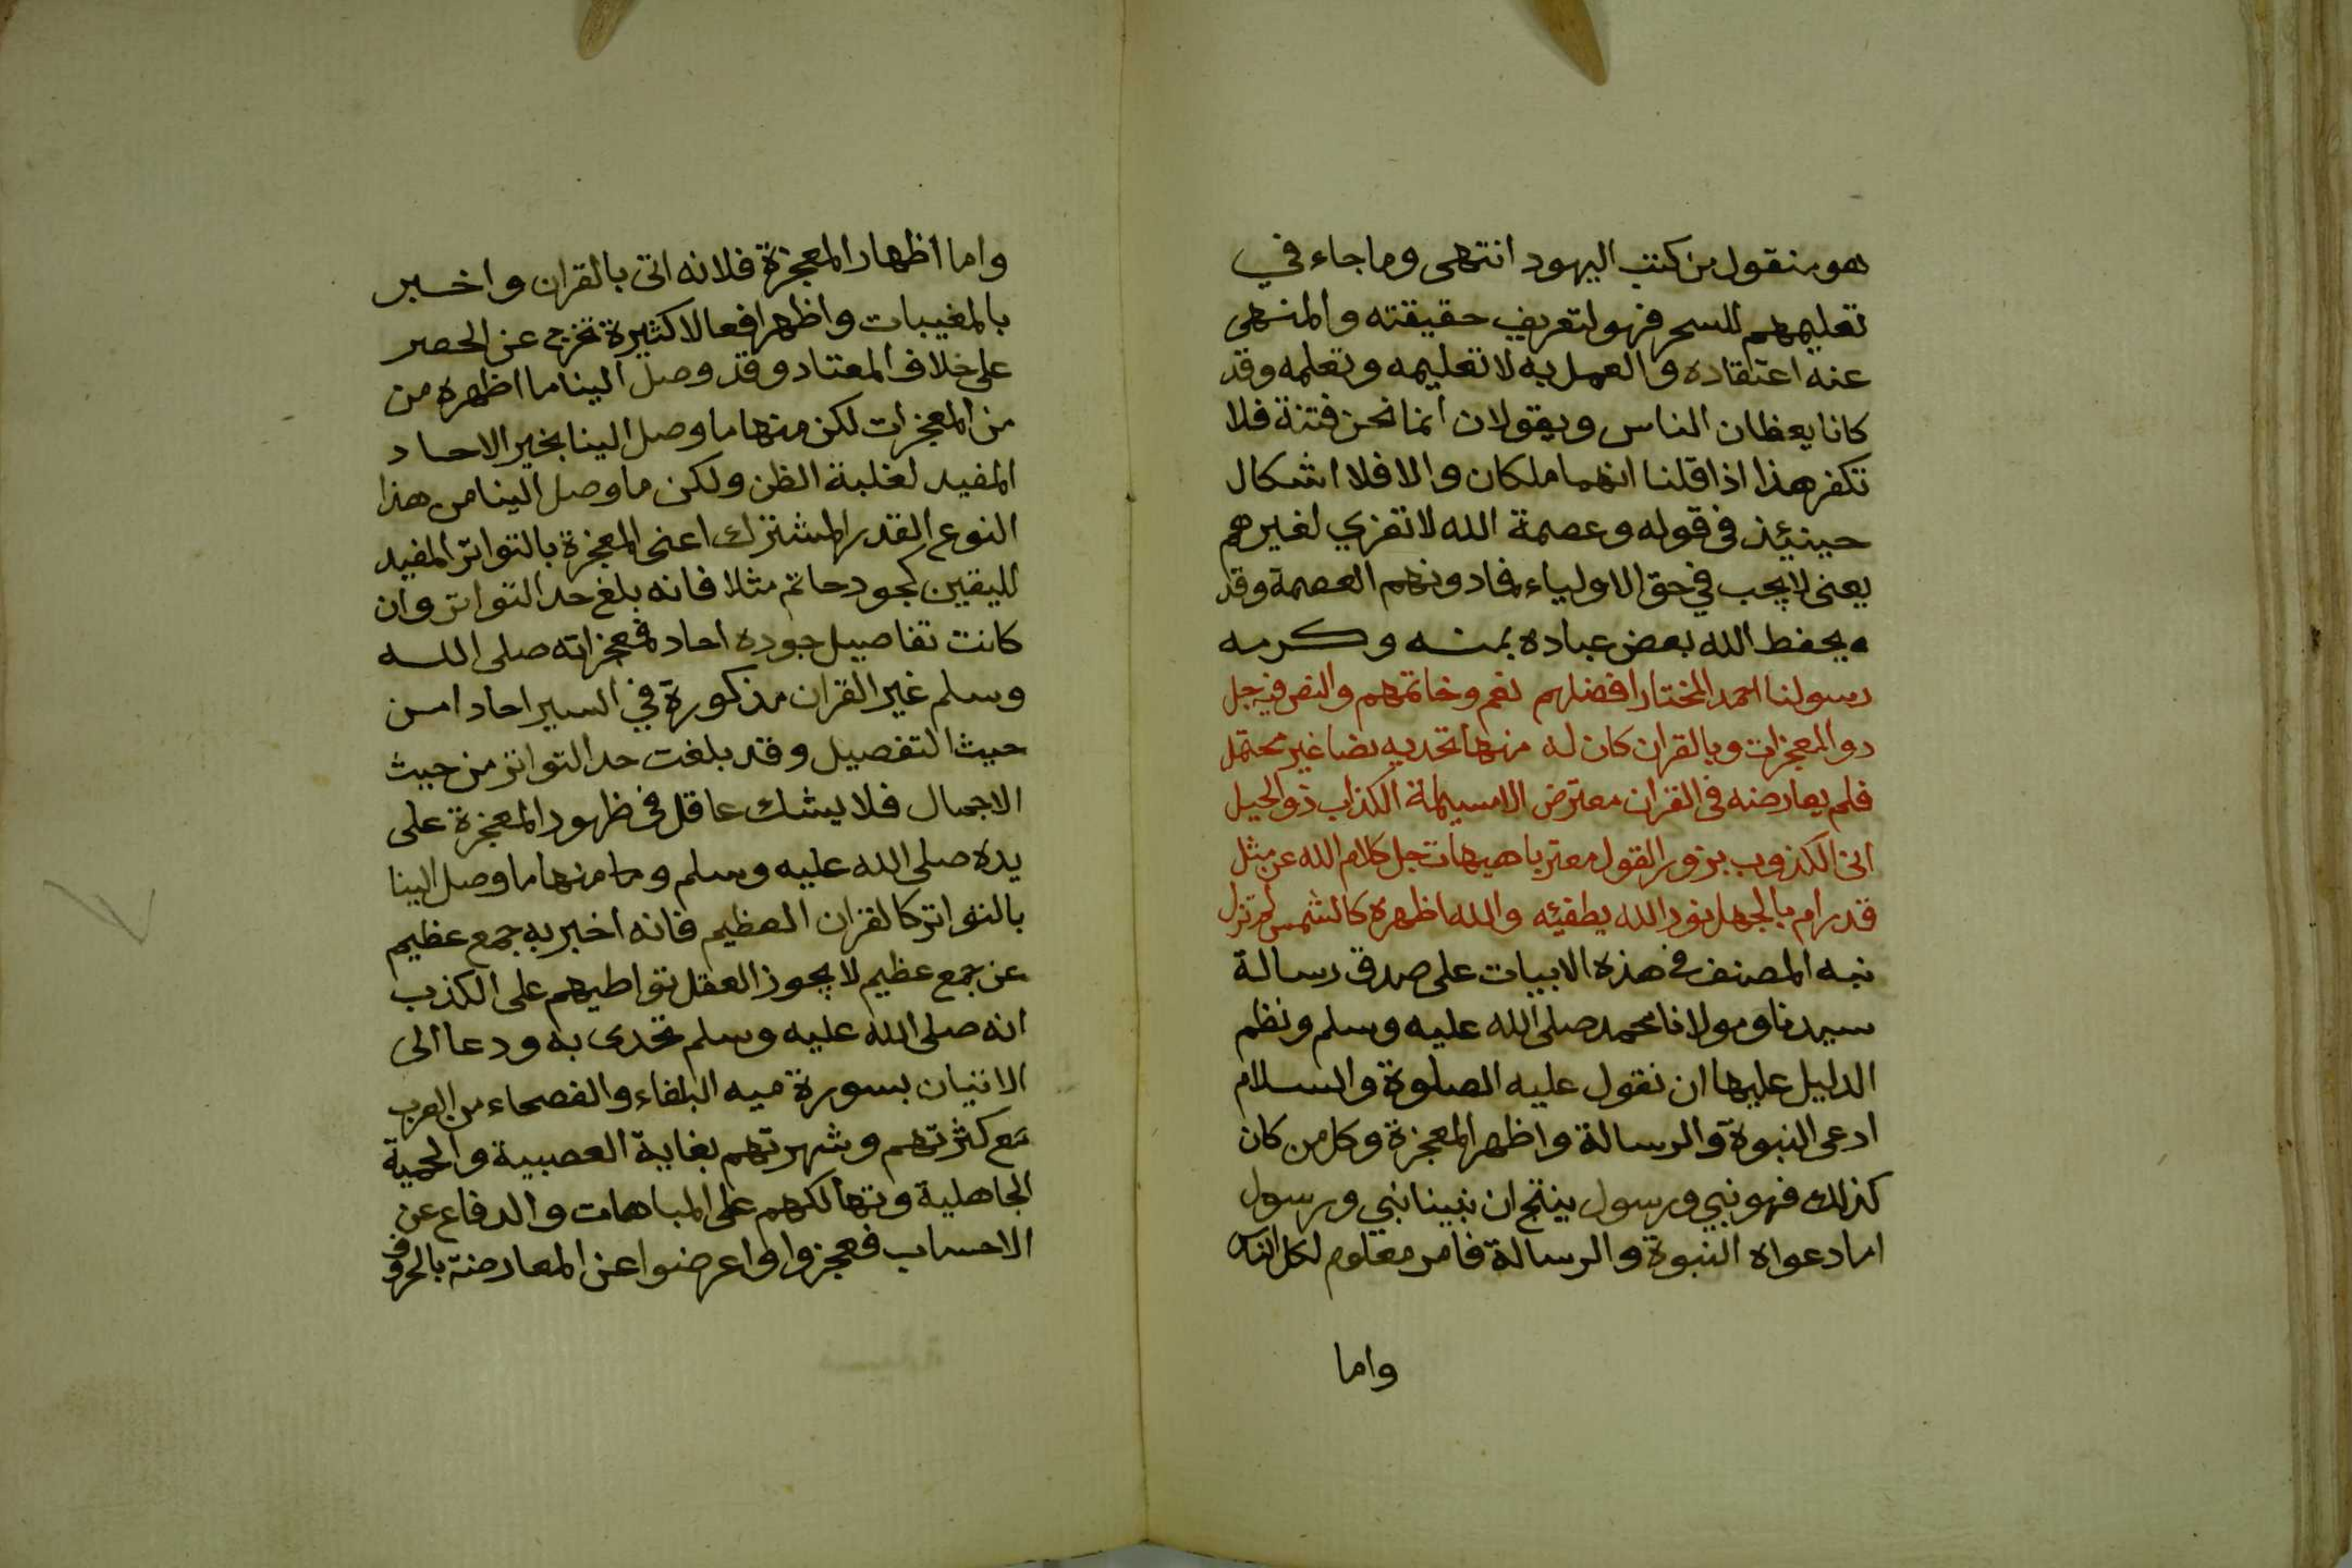 هو منقول من كتب اليهود انتهى وما جاء في
تعليمهم للسحر فهو لتعريف حقيقته والمنهى
عنه اعتقاده والعمل به لا تعليمه وتعلمه وقد
كانا يعظان الناس ويقولان انما نحن فتنة فلا
تكفر هذا اذا قلنا انهما ملكان والا فلا اشكال
حينيئذ في قوله وعصمة الله لا تعزي لغيرهم
يعنى لا يجب في حق الاولياء فمادونهم العصمة وقد
يحفظ الله بعض عباده بمنه وكرمه
رسولنا احمد المختار افضلهم نعم وخاتمهم والنص فيه جل
ذو المعجزات وبالقران كان له منها تحديه نصا غير محتمل
فلم يعارضه في القران معترض الا مسيلمة الكذاب ذو الحيل
اتى الكذوب بزور القول معتريا هيهات جل كلام الله عن مثل
قد رام بالجهل نور الله يطفيئه والله اظهره كالشمس لم تزل
نبه المصنف في هذه الابيات على صدق رسالة
سيدنا ومولانا محمد صلى الله عليه وسلم ونظم
الدليل عليها ان نقول عليه الصلوة والسلام
ادعى النبوة والرسالة واظهر المعجزة وكل من كان
كذلك فهو نبي ورسول ينتج ان نبينا نبي ورسول
اما دعواه النبوة والرسالة فامر معلوم لكل
واما
واما اظهار المعجزة فلانه اتى بالقران واخبر
بالمغيبات واظهر افعالا كثيرة تخرج عن الحصر
على خلاف المعتاد وقد وصل الينا ما اظهره من
من المعجزات لكن منها ما وصل الينا بخبر الاحاد
المفيد لغلبة الظن ولكن ما وصل الينا من هذا
النوع القدر المشترك اعنى المعجزة بالتواتر المفيد
لليقين كجود حاتم مثلا فانه بلغ حد التواتر وان
كانت تفاصيل جوده احاد فمعجزاته صلى الله
وسلم غير القران مذكورة في السير احادا من
حيث التفصيل وقد بلغت حد التواتر من حيث
الاجمال فلا يشك عاقل في ظهور المعجزة على
يده صلى الله عليه وسلم وما منها ما وصل الينا
بالتواتر كالقران العظيم فانه اخبر به جمع عظيم
عن جمع عظيم لا يجوز العقل تواطيهم على الكذب
انه صلى الله عليه وسلم تحدى به ودعا الى
الاتيان بسورة ميه البلغاء والفصحاء من العرب
مع كثرتهم وشهرتهم بغاية العصبية والحمية
الجاهلية وتهالكهم على المباهات والدفاع عن
الاحساب فعجزوا واعرضوا عن المعارضة بالحروف